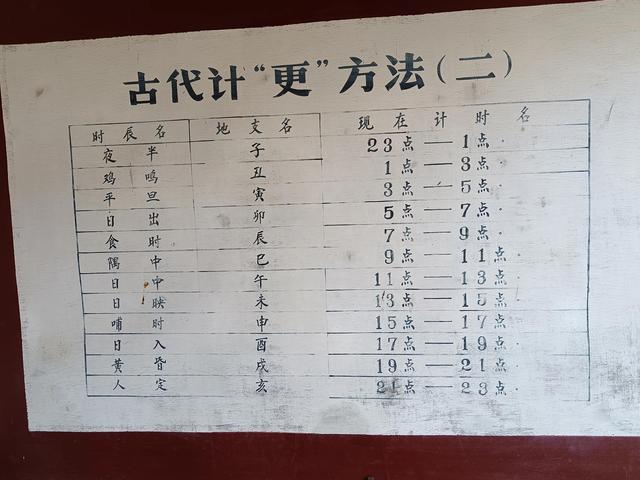 古代计“更”方法(二)
时辰名 地支名 现在计时名
夜半 子 23点—1点
鸡鸣 丑 1点—3点
平旦 寅 3点—5点
日出 卯 5点—7点
食时 辰 7点—9点
隅中 巳 9点—11点
日中 午 11点—13点
日昳 未 13点—15点
哺时 申 15点—17点
日入 酉 17点—19点
黄昏 戌 19点—21点
人定 亥 21点—23点